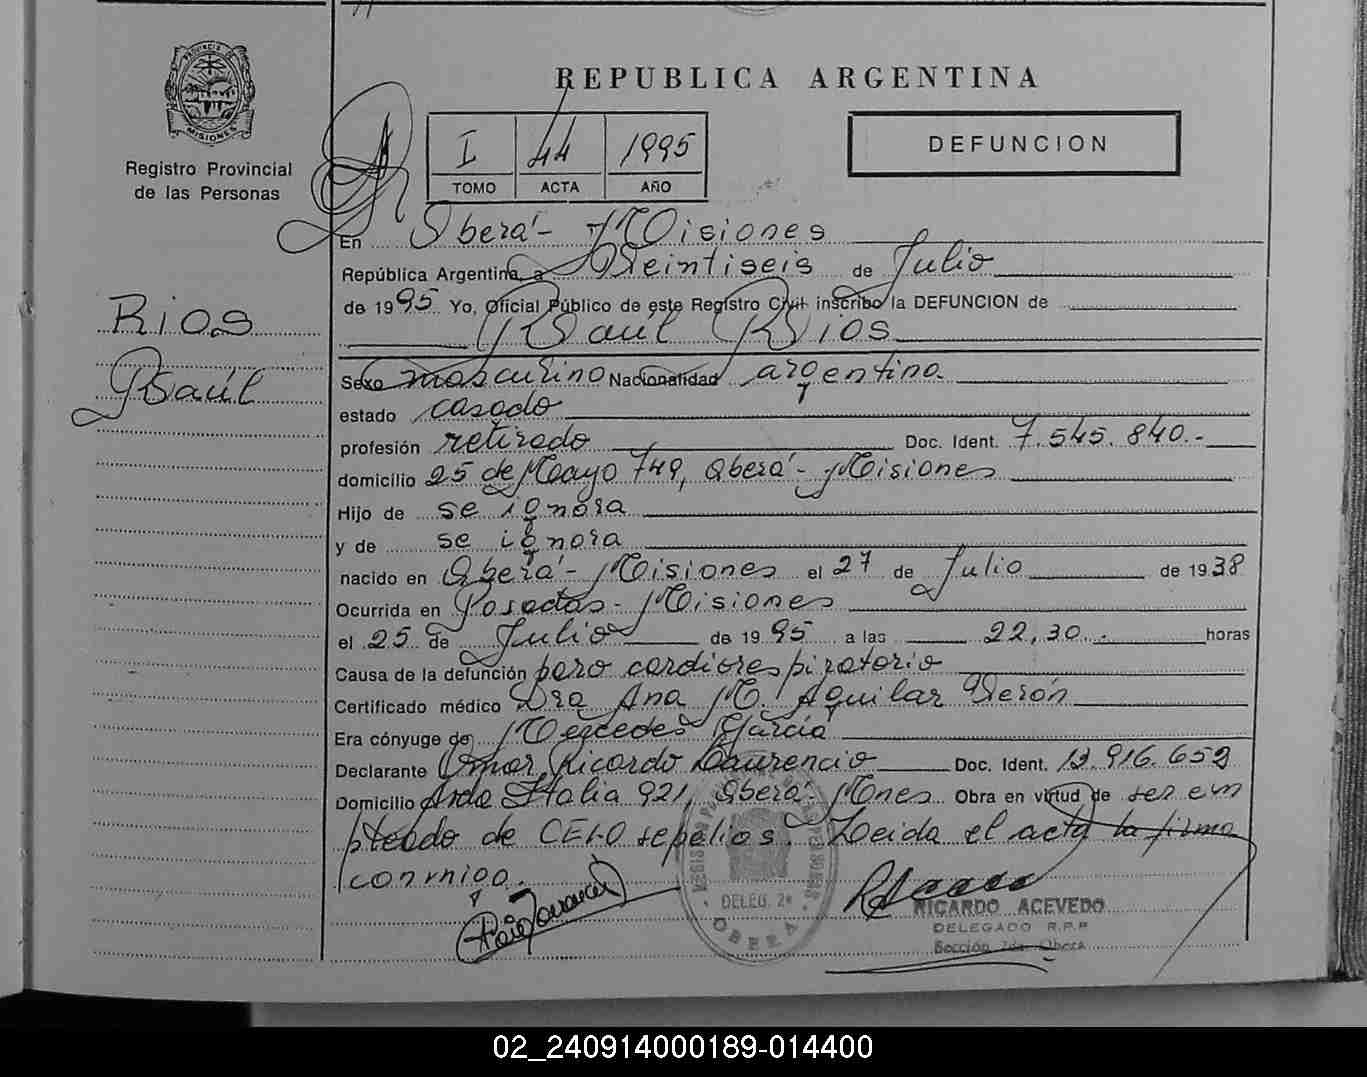 REPUBLICA ARGENTINA
PROVINCIA DE
MISIONES
Registro Provincial
de las Personas
I 44 1995
TOMO ACTA AÑO
DEFUNCION
En Oberá - Misiones
República Argentina, a Veintiseis de Julio
de 1995 Yo, Oficial Público de este Registro Civil inscribo la DEFUNCION de
Raul Rios
Rios
Raúl
Sexo masculino Nacionalidad argentina
estado casado
profesión retirado Doc. Ident. 7.545.840.-
domicilio 25 de Mayo 749, Oberá - Misiones
Hijo de se ignora
y de se ignora
nacido en Oberá - Misiones el 27 de Julio de 1938
Ocurrida en Posadas - Misiones
el 25 de Julio de 1995 a las 22,30.- horas
Causa de la defunción paro cardiorespiratorio
Certificado médico Dra Ana M. Aquilar Verón
Era cónyuge de Mercedes García
Declarante Omar Ricardo Laurencio Doc. Ident. 12.916.652
Domicilio Avda Italia 921, Oberá, Mnes Obra en virtud de ser em
pleado de CELO sepelios. Leida el acta la firma
conmigo.
DELEG. 2ª
OBERA
RICARDO ACEVEDO
DELEGADO R.P.P
Sección 2da. Obera
02_240914000189-014400